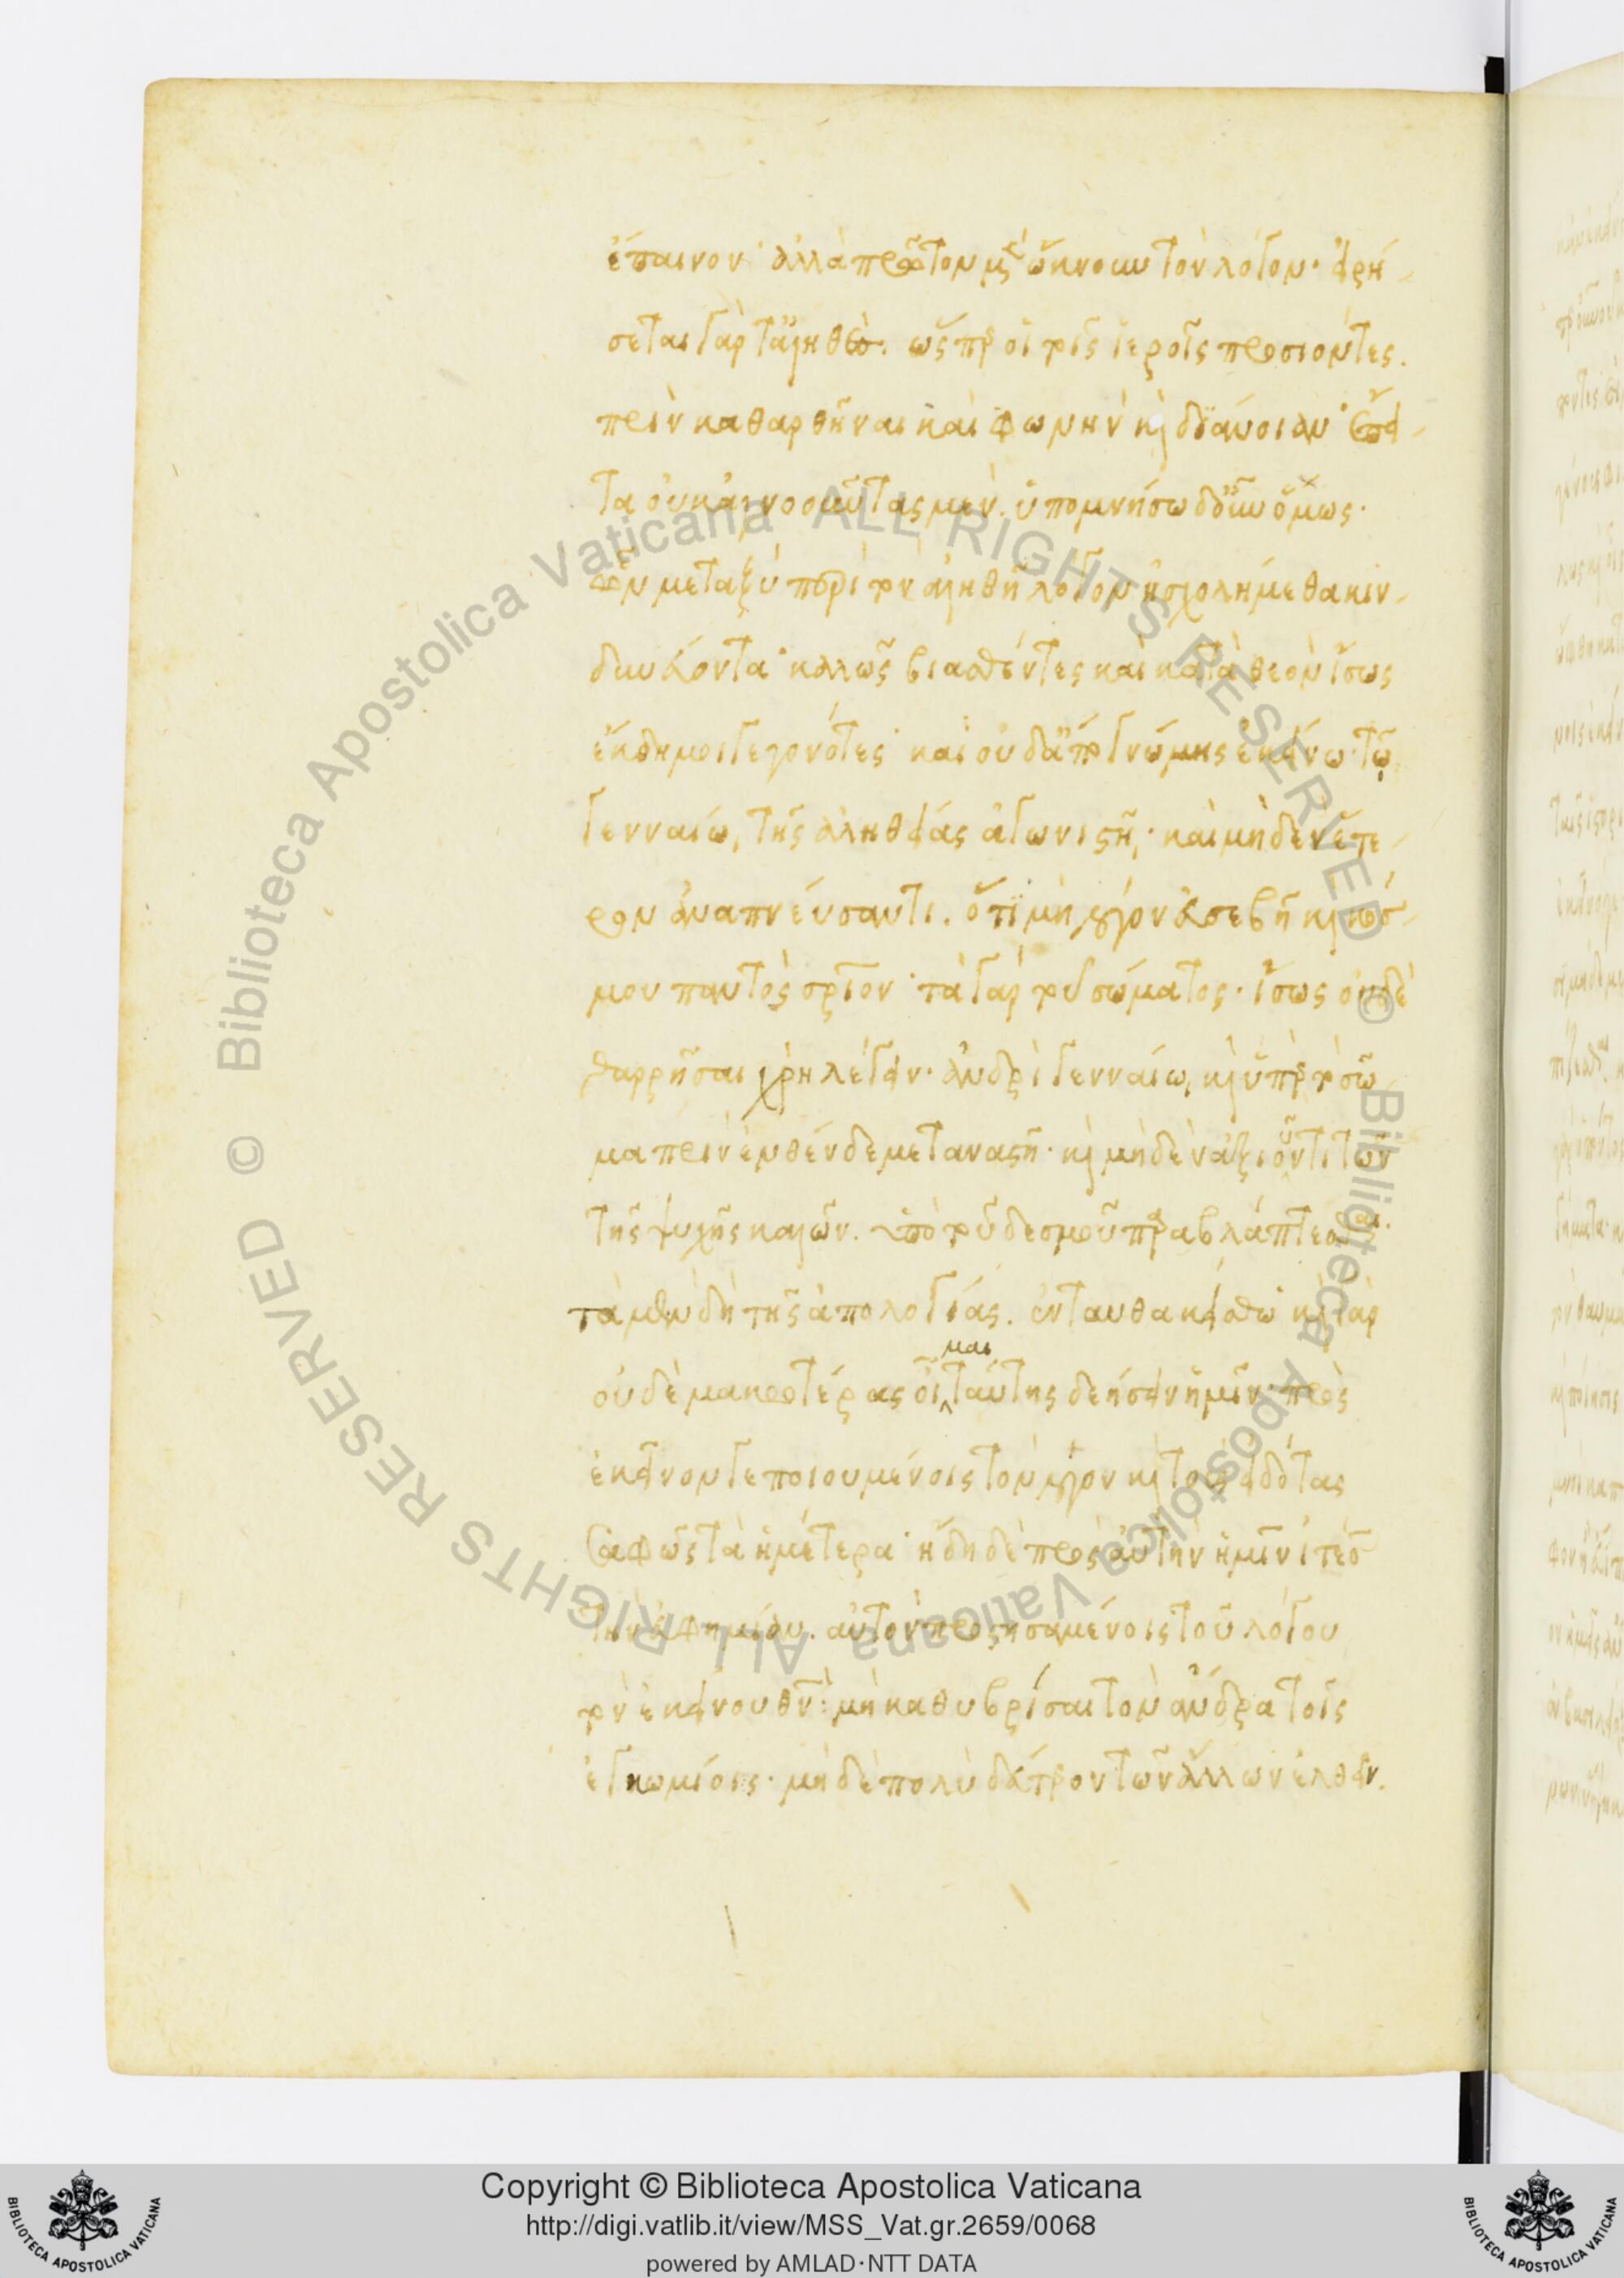 ἔπαινον· ἀλλὰ πρῶτον μὲ ὤκνουν τὸν λόγον· εἰρή-
σεται γὰρ τἀληθές. ὥσπερ οἱ τοῖς ἱεροῖς προσιόντες.
πρὶν καθαρθῆναι καὶ φωνὴν κὶ διάνοιαν·
τα οὐκ ἀγνοοῦντας μὲν. ὑπομνήσω δ' οὖν ὅμως·
ὧν μεταξὺ περὶ τὸν ἀληθῆ λόγον ἠσχολήμεθα κιν-
δυνεύοντα· καλῶς βιασθέντες καὶ κατὰ θεὸν ἴσως
ἔκδημοι γεγονότες· καὶ οὐδ' ἄπο γνώμης ἐκείνω· τῷ
γενναίῳ, τῆς ἀληθείας ἀγωνιστῇ· καὶ μηδὲν ἕτε-
ρον ἀναπνεύσαντι. ὅτι μὴ λόγον εὐσεβῆ κὶ κόσ-
μου παντὸς σωτήριον· τὰ γὰρ τοῦ σώματος· ἴσως οὐδὲ
θαρρῆσαι χρὴ λέγειν· ἀνδρὶ γενναίῳ, κὶ ὑπὲρ τὸ σῶ
μα πρὶν ἐνθένδε μεταναστῆ· κὶ μηδὲν ἀξιοῦντι τῶν
τῆς ψυχῆς καλῶν. ὑπὸ τοῦ δεσμοῦ παραβλάπτεσθαι.
τὰ μὲν δὴ τῆς ἀπολογίας. ἐνταυθα κείσθω· κὶ γὰρ
οὐδὲ μακροτέρας οἶμαι ταύτης δεήσειν ἡμῖν· πρὸς
ἐκεῖνον γε ποιουμένοις τὸν λόγον κὶ τοὺς εἰδότας
σαφῶς τὰ ἡμέτερα· ἤδη δὲ πρὸς αὐτὴν ἡμῖν ἰτέον
τὴν εὐφημίαν. αὐτὸν προστησαμένοις τοῦ λόγου
τὸν ἐκείνου θν̅: μὴ καθυβρίσαι τὸν ἄνδρα τοῖς
ἐγκωμίοις· μηδὲ πολὺ δεύτερον τῶν ἄλλων ἐλθεῖν.
Copyright © Biblioteca Apostolica Vaticana
http://digi.vatlib.it/view/MSS_Vat.gr.2659/0068
powered by AMLAD·NTT DATA
© Biblioteca Apostolica Vaticana ALL RIGHTS RESERVED
© Biblioteca Apostolica Vaticana ALL RIGHTS RESERVED
BIBLIOTECA APOSTOLICA VATICANA
BIBLIOTECA APOSTOLICA VATICANA